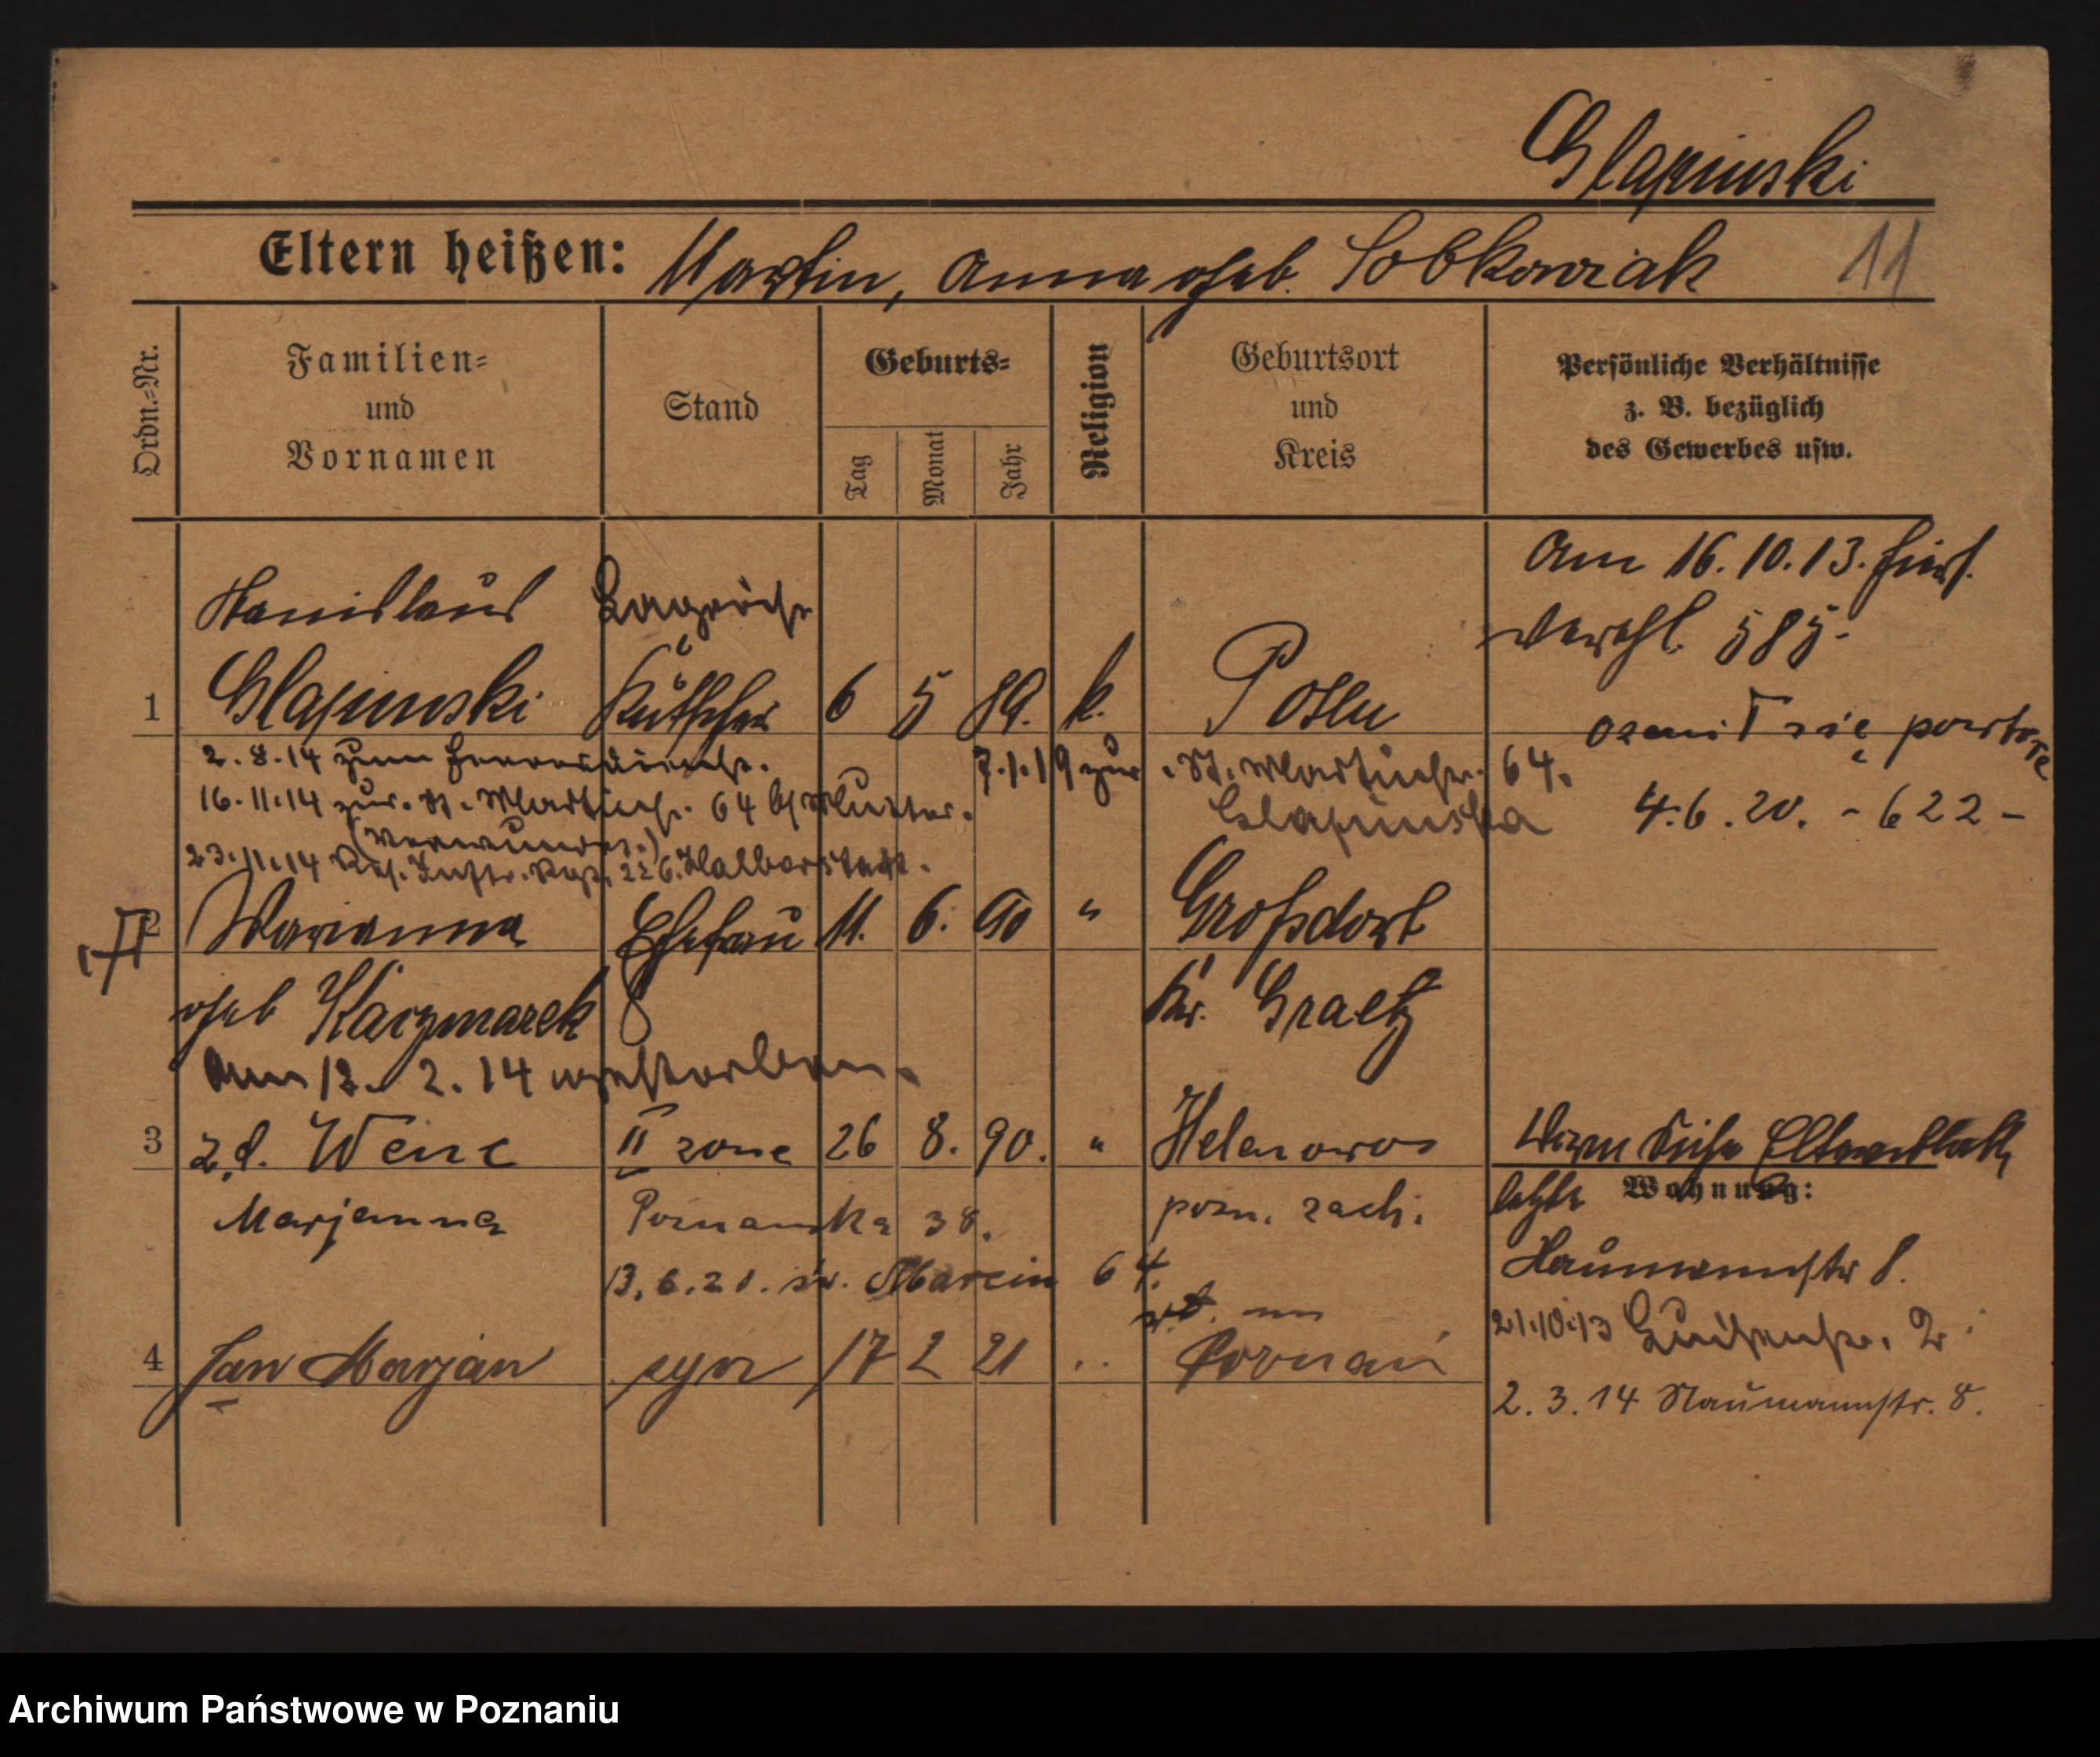 Glapinski
Eltern heißen: Martin, Anna geb. Sobkowiak 11
Ordn.=Nr.
Familien=
und
Vornamen
Stand
Geburts=
Tag
Monat
Jahr
Religion
Geburtsort
und
Kreis
Persönliche Verhältnisse
z. B. bezüglich
des Gewerbes usw.
Am 16.10.13. hier
verehl. 585.
Stanislaus
1 Glapinski Kutscher 6 5 89. k. Posen
ożenił się powtore
4.6.20. - 622 -
2.8.14 zum Heeresdienst.
7.1.19 zur St. Martinstr. 64.
16.11.14 zur St. Martinstr. 64 b/ Mutter.
(Verwundet.)
Glapinska
23.11.14 Res. Inftr. Rgt. 226. Halberstadt.
2 Marianna Ehefrau 11. 6. 90 " Großdorf
geb Kaczmarek Kr. Graetz
Am 12. 2. 14 gestorben.
3 z.d. Wenc II żone 26 8. 90. " Helenowo
Wegen siehe Elternblatt
Marjanna Poznanska 38. pozn. zach.
letzte Wohnung:
Naumannstr 8.
13.6.20. św. Marcin 64.
21.10.13 Luisenstr. 2
4 Jan Marjan syn 17 2 21 " Poznań
2.3.14 Naumannstr. 8.
Archiwum Państwowe w Poznaniu